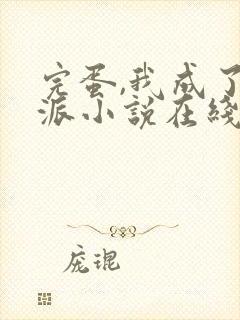 完蛋,我成了
派小説在綫
庞琨